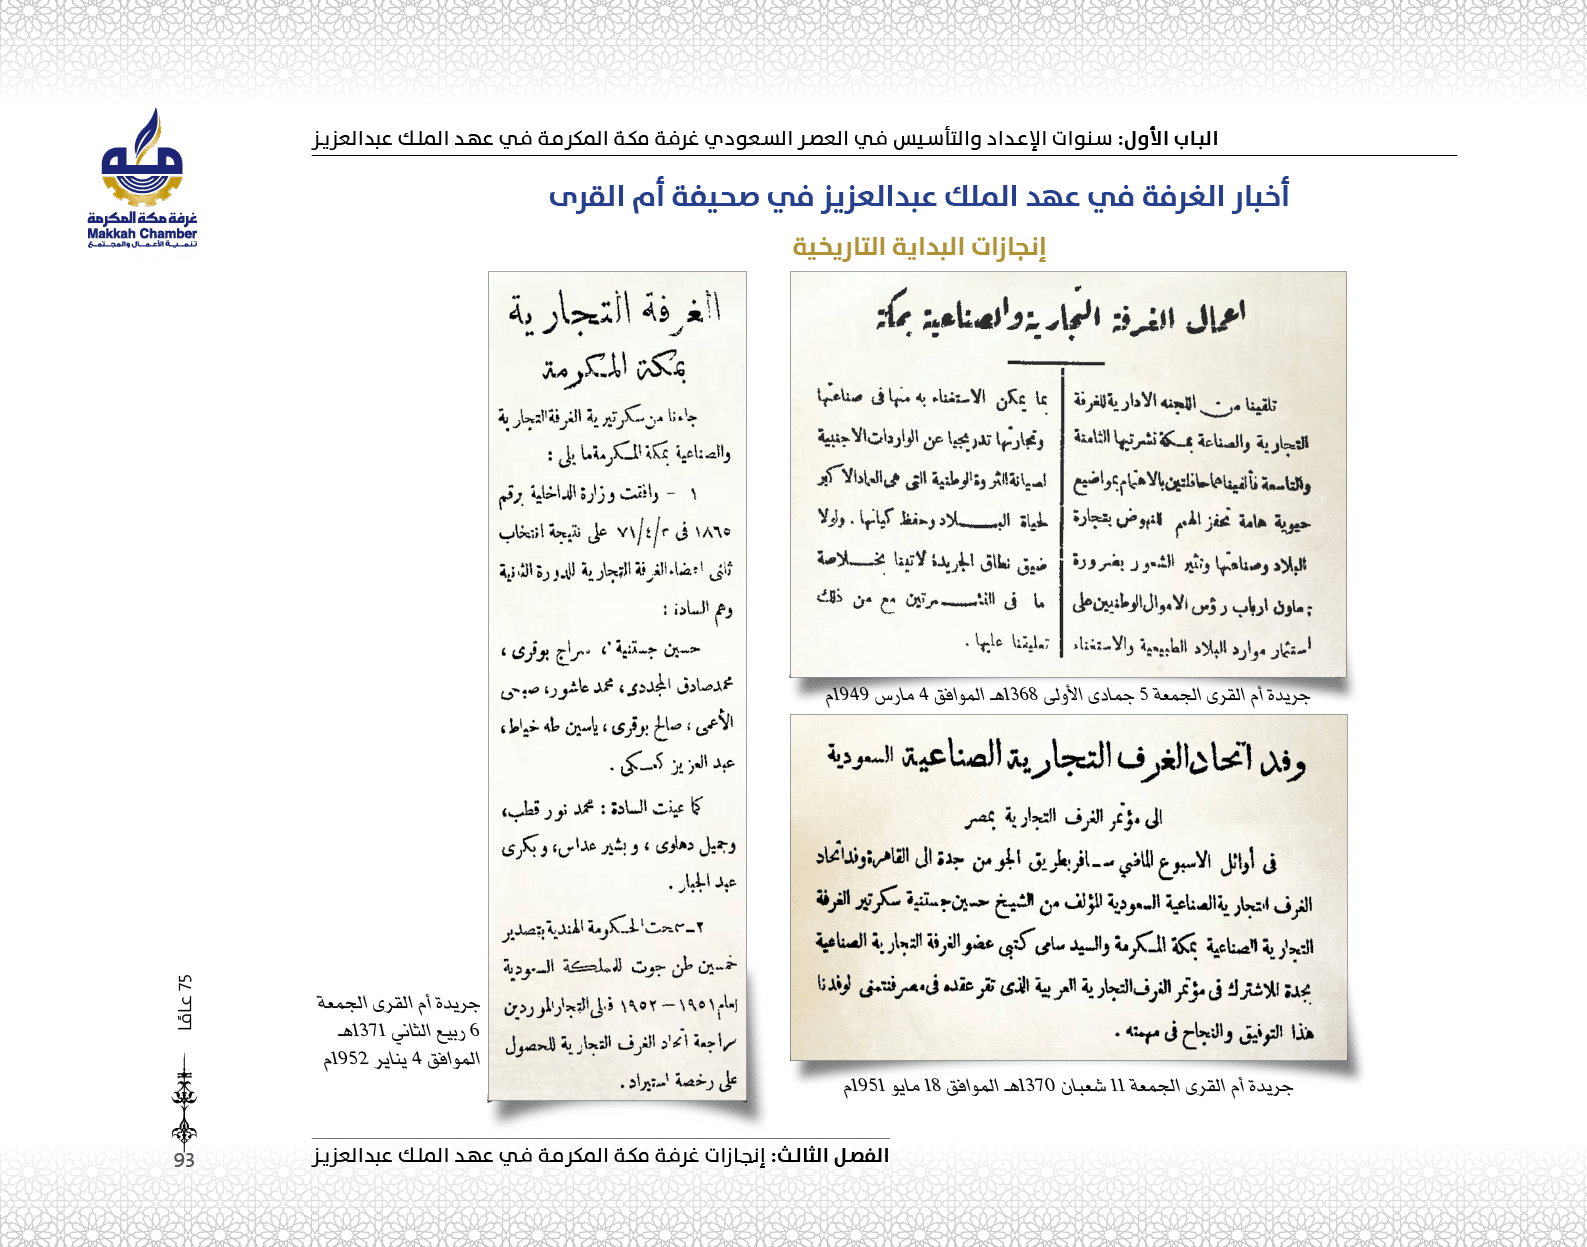 غرفة مكة المكرمة
Makkah Chamber
تنمية الأعمال والمجتمع
الباب الأول: سنوات الإعداد والتأسيس في العصر السعودي غرفة مكة المكرمة في عهد الملك عبدالعزيز
أخبار الغرفة في عهد الملك عبدالعزيز في صحيفة أم القرى
إنجازات البداية التاريخية
اعمال الغرفة التجارية والصناعية بمكة
تلقينا من اللجنه الادارية للغرفة
التجارية والصناعة بمكة نشرتيها الثامنة
والتاسعة فألفيناهما حافلتين بالاهتمام بمواضيع
حيوية هامة تحفز الهمم للنهوض بتجارة
البلاد وصناعتها وتثير الشعور بضرورة
تعاون ارباب رؤس الاموال الوطنيين على
استثمار موارد البلاد الطبيعية والاستغناء
بما يمكن الاستغناء به منها فى صناعتها
وتجارتها تدريجيا عن الواردات الاجنبية
لصيانة الثروة الوطنية التى هى العماد الاكبر
لحياة البلاد وحفظ كيانها . ولولا
ضيق نطاق الجريدة لاتينا بخلاصة
ما فى النشرتين مع من ذلك
تعليقنا عليها .
جريدة أم القرى الجمعة 5 جمادى الأولى 1368هـ الموافق 4 مارس 1949م
وفد اتحاد الغرف التجارية الصناعية السعودية
الى مؤتمر الغرف التجارية بمصر
فى أوائل الاسبوع الماضي سافر بطريق الجو من جدة الى القاهرة وفد اتحاد
الغرف التجارية الصناعية السعودية المؤلف من الشيخ حسين جستنية سكرتير الغرفة
التجارية الصناعية بمكة المكرمة والسيد سامى كتبى عضو الغرفة التجارية الصناعية
بجدة للاشترك فى مؤتمر الغرف التجارية العربية الذى تقرر عقده فى مصر فنتمنى لوفدنا
هذا التوفيق والنجاح فى مهمته .
جريدة أم القرى الجمعة 11 شعبان 1370هـ الموافق 18 مايو 1951م
الغرفة التجارية
بمكة المكرمة
جاءنا من سكرتيرية الغرفة التجارية
والصناعية بمكة المكرمة ما يلى :
١ - وافقت وزارة الداخلية برقم
١٨٦٥ فى ٧١/٤/٢ على نتيجة انتخاب
ثلثى اعضاء الغرفة التجارية للدورة الثانية
وهم السادة :
حسين جستنية ، سراج بوقرى ،
محمد صادق المجددى ، محمد عاشور ، صبحى
الأعمى ، صالح بوقرى ، ياسين طه خياط ،
عبد العزيز كعكى .
كما عينت السادة : محمد نور قطب ،
وجميل دهلوى ، و بشير عداس ، و بكرى
عبد الجبار .
٢ ـ سمحت الحكومة الهندية بتصدير
خمسين طن جوت للمملكة السعودية
لعام ١٩٥١ — ١٩٥٢ فعلى التجار الموردين
مراجعة اتحاد الغرف التجارية للحصول
على رخصة استيراد .
جريدة أم القرى الجمعة
6 ربيع الثاني 1371هـ
الموافق 4 يناير 1952م
75 عامًا
93
الفصل الثالث: إنجازات غرفة مكة المكرمة في عهد الملك عبدالعزيز